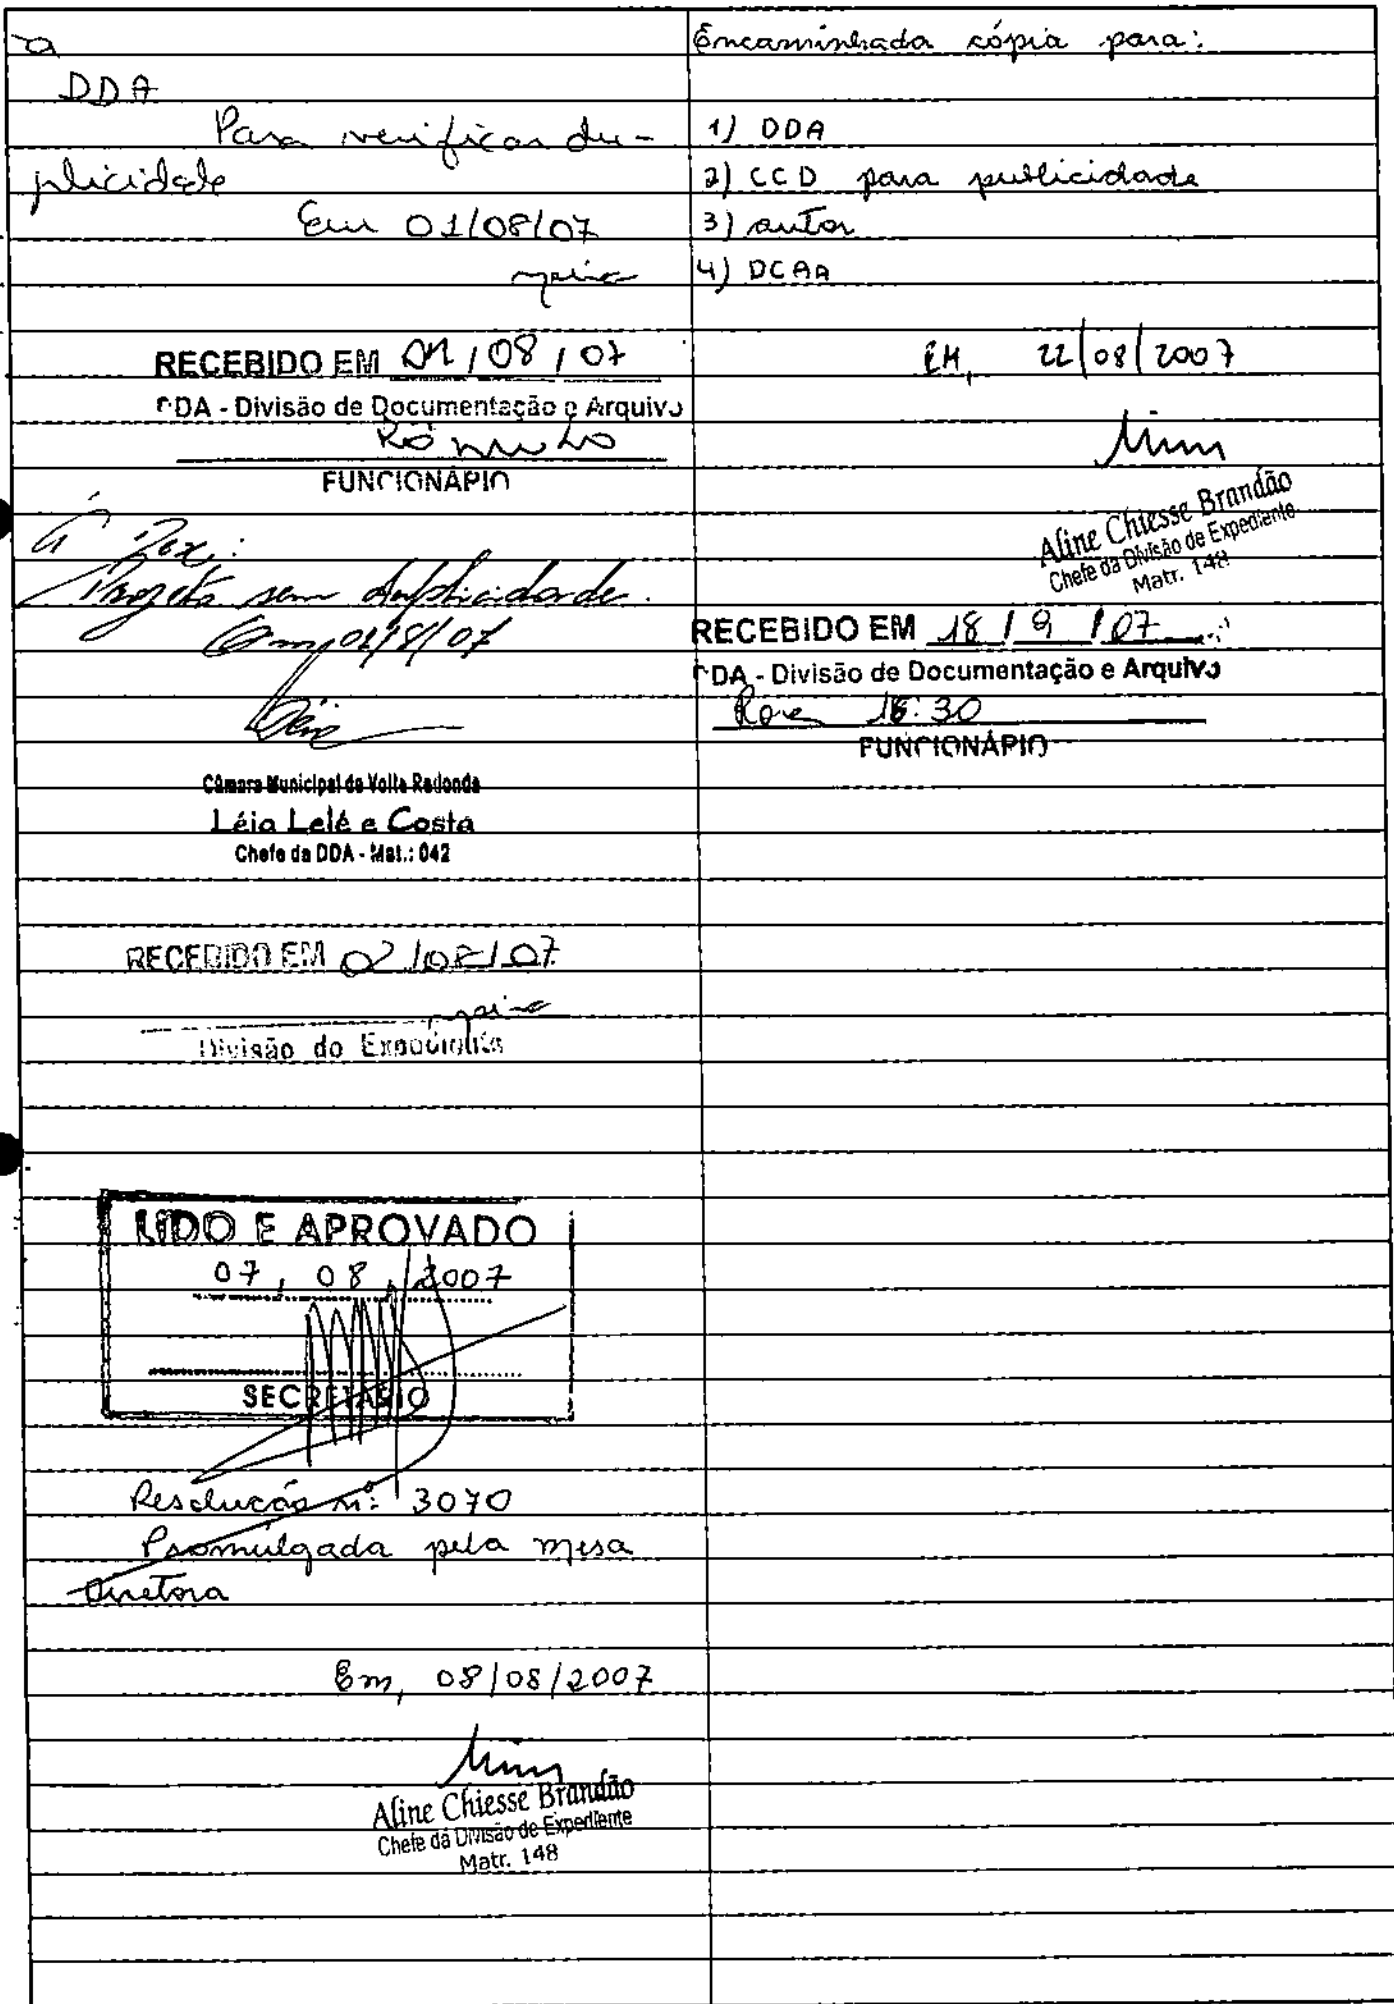 a
DDA
Para verificar du-
plicidade
Em 01/08/07
RECEBIDO EM 01/08/07
DDA - Divisão de Documentação e Arquivo
Rômulo
FUNCIONÁRIO
Projeto sem duplicidade.
Em, 02/8/07
Câmara Municipal de Volta Redonda
Léia Lelé e Costa
Chefe da DDA - Mat.: 042
RECEBIDO EM 02/08/07
Divisão de Expediente
LIDO E APROVADO
07, 08, 2007
SECRETARIO
Resolução nº: 3070
Promulgada pela mesa
Diretora
Em, 08/08/2007
Aline Chiesse Brandão
Chefe da Divisão de Expediente
Matr. 148
Encaminhada cópia para:
1) DDA
2) CCD para publicidade
3) autor
4) DCAA
EM, 22/08/2007
Aline Chiesse Brandão
Chefe da Divisão de Expediente
Matr. 148
RECEBIDO EM 18/9/07
DDA - Divisão de Documentação e Arquivo
Rose 16:30
FUNCIONÁRIO